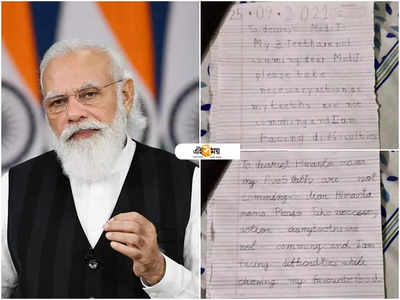 25.09.2021
Modi Ji
My 3 Teeth are not
comming dear Modi
please take
necessary actions as
my teeths are not
comming and I am
facing difficulties
এই সময়
To dearest Himanta mama
my five 5 teeth are not
comming. dear Himanta
mama Please Take
action as my teeth are
not comming and I am
facing difficulties while
my favourite